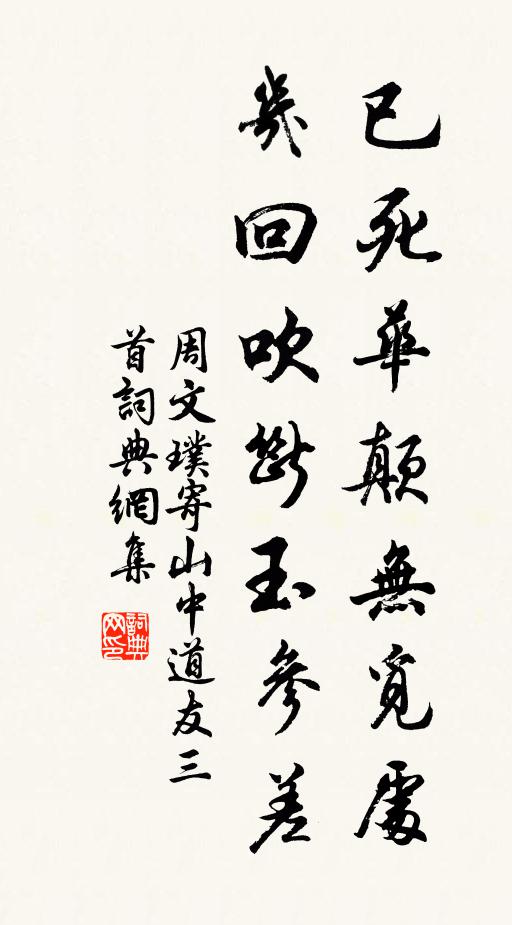 已死華顛無覓處
幾回吹斷玉參差
周文璞寄山中道友三
首詞典網集
詞典
网印